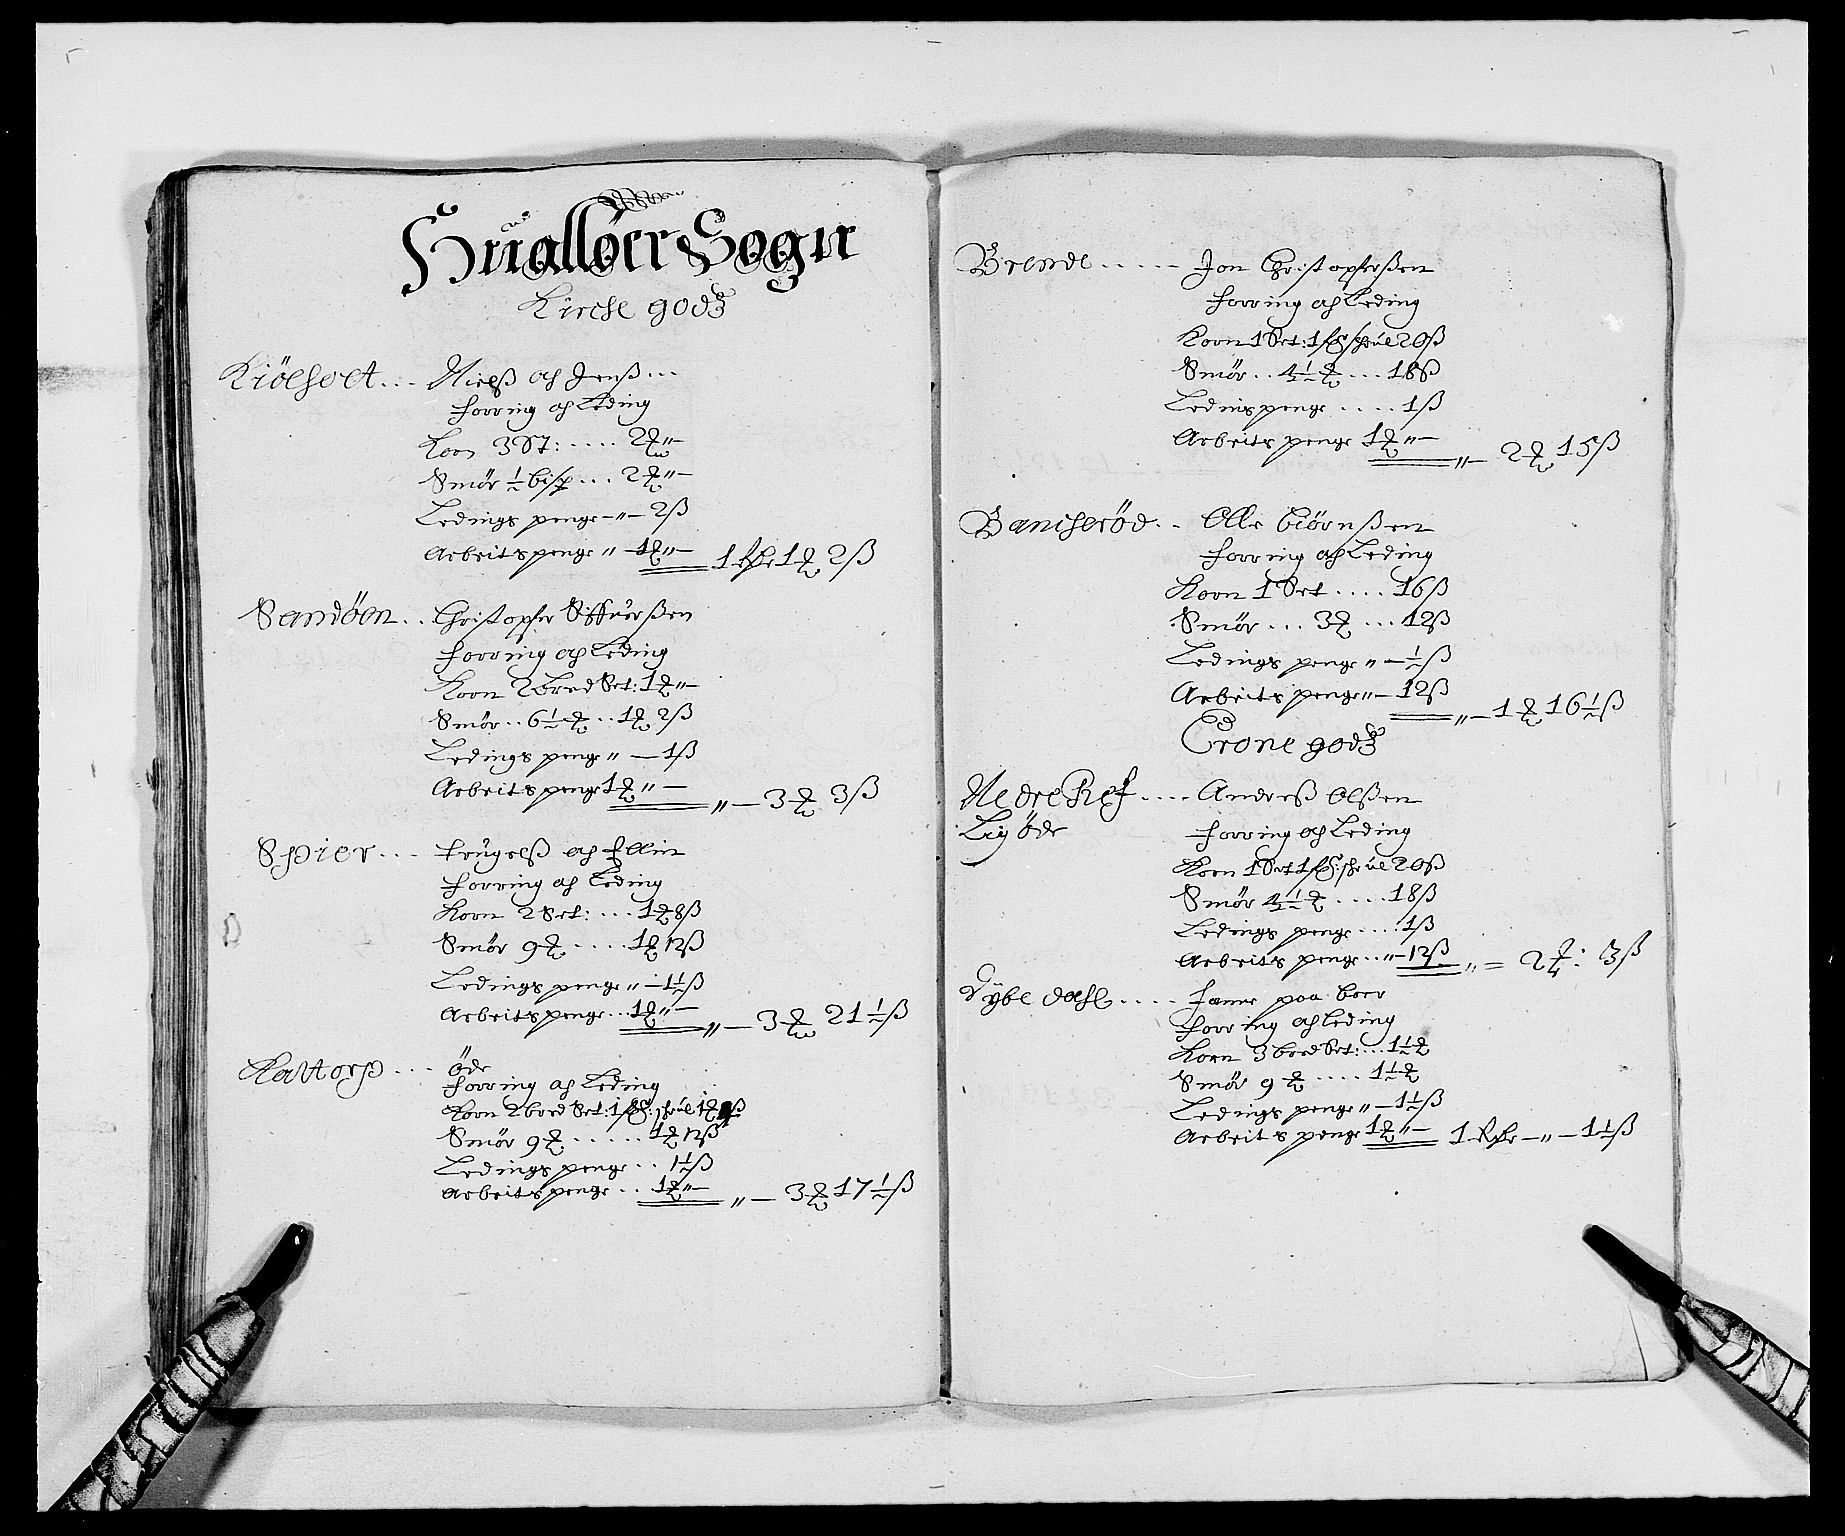 Huallöer Sogn
Kirche godz
Kiölholt... Nielß och Jenß...
Forring och Leding
Korn 3 St: ..... 2 ₰ „ —
Smör ½ bisp ... 2 ₰ „ —
Ledings penge — „ — 2 ß
Arbeitspenge „ — 1 ₰ „ — 1 Rdr 1 ₰ 2 ß
Sandöen.. Christopher Siffuerßen
Forring och Leding
Korn 2 bred Set: 1 ₰ „ —
Smör .. 6½ ₰ .. 1 ₰ 2 ß
Ledings penge „ — 1 ß
Arbeitspenge 1 ₰ „ — „ — 3 ₰ 3 ß
Spier... Trugelß och Ellin
Forring och Leding
Korn 2 Set: ... 1 ₰ 8 ß
Smör 9 ₰ .... 1 ₰ 12 ß
Ledings penge „ — 1½ ß
Arbeitspenge ... 1 ₰ „ — „ — 3 ₰ 21½ ß
Kattorp ... öde
Forring och Leding
Korn 2 bred Set: 1 schrüel 1 ₰
Smör 9 ₰ ..... 1 ₰ 12 ß
Ledings penge .. 1½ ß
Arbeitspenge ... 1 ₰ „ — „ — 3 ₰ 17½ ß
Brende ..... Jon Christopherßen
Forring och Leding
Korn 1 Set: 1 schrüel 20 ß
Smör .. 4½ ₰ ... 18 ß
Ledings penge .... 1 ß
Arbeits penge 1 ₰ „ — „ — 2 ₰ 15 ß
Bancheröd.. Olle Biörnßen
Forring och Leding
Korn 1 Set .... 16 ß
Smör ... 3 ₰ ... 12 ß
Ledings penge „ — ½ ß
Arbeits penge „ — 12 ß „ — 1 ₰ 16½ ß
Crone godz
Nedre Ref .... Anderß Olßen
Lig öde Forring och Leding
Korn 1 Set 1 schrüel 20 ß
Smör 4½ ₰ .... 18 ß
Ledings penge .... 1 ß
Arbeits penge .. „ — 12 ß „ = 2 ₰: 3 ß
Dÿbe dahl ..... paa boer
Forring och Leding
Korn 3 bred Set: ... 1½ ₰
Smör 9 ₰ .... 1½ ₰
Ledings penge „ — 1½ ß
Arbeits penge 1 ₰ „ — 1 Rdr — „ — 1½ ß